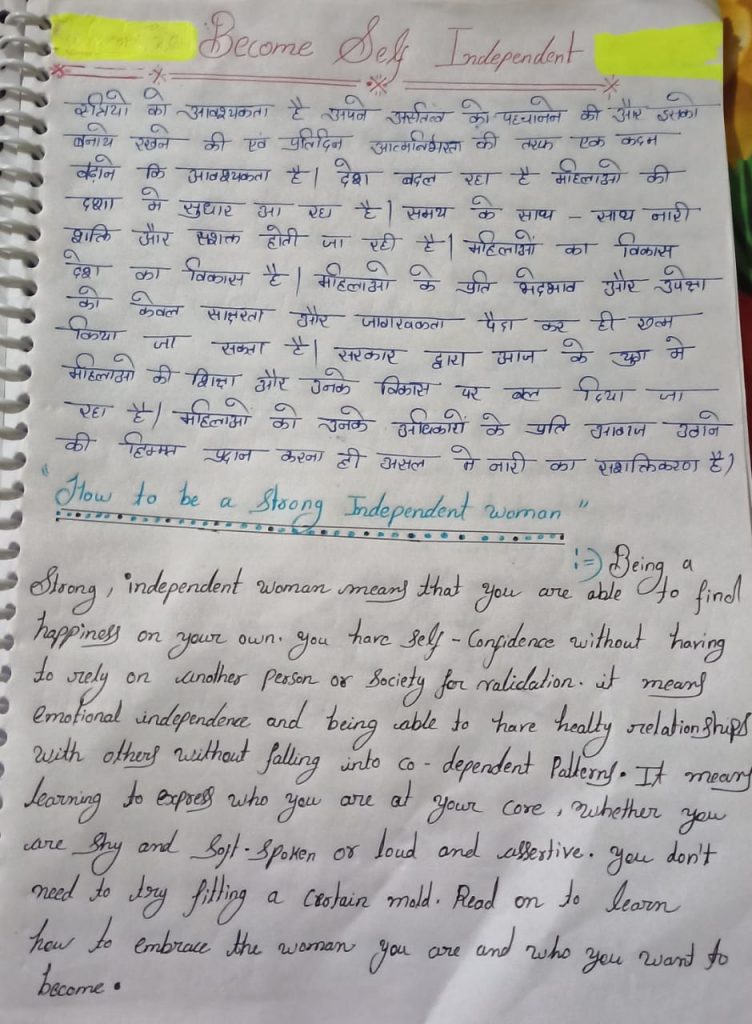 Become Self Independent
स्त्रियो को आवश्यकता है अपने अस्तित्व को पहचानने की और उसको
बनाये रखने की एवं प्रतिदिन आत्मनिर्भरता की तरफ एक कदम
बढ़ाने कि आवश्यकता है| देश बदल रहा है महिलाओ की
दशा मे सुधार आ रहा है| समय के साथ - साथ नारी
शक्ति और सशक्त होती जा रही है| महिलाओं का विकास
देश का विकास है| महिलाओ के प्रति भेदभाव और उपेक्षा
को केवल साक्षरता और जागरूकता पैदा कर ही खत्म
किया जा सकता है| सरकार द्वारा आज के युग मे
महिलाओ की शिक्षा और उनके विकास पर बल दिया जा
रहा है| महिलाओं को उनके अधिकारों के प्रति आवाज उठाने
की हिम्मत प्रदान करना ही असल मे नारी का सशक्तिकरण है)
"How to be a Strong Independent woman"
:=) Being a
Strong, independent woman means that you are able to find
happiness on your own. you have self-Confidence without having
to rely on another person or Society for validation. it means
emotional independence and being able to have healty relationships
with others without falling into co-dependent Patterns. It means
learning to express who you are at your core, whether you
are Shy and Soft-Spoken or loud and assertive. you don't
need to try fitting a certain mold. Read on to learn
how to embrace the woman you are and who you want to
become.